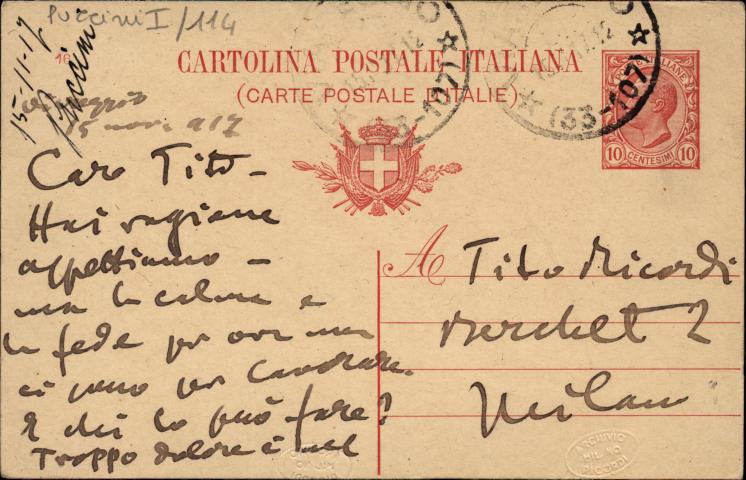 Puccini I/114
15-11-17
Puccini
16
CARTOLINA POSTALE ITALIANA
(CARTE POSTALE D'ITALIE)
(33-107)
(33-107)
POSTE ITALIANE
10 CENTESIMI 10
Viareggio
15 nov. 917
Caro Tito -
Hai ragione
aspettiamo -
ma la calma e
la fede per ora non
ci sono per lavorare.
E chi lo può fare?
Troppo dolore è nel
A Tito Ricordi
Merchet 2
Milano
ARCHIVIO
MILANO
RICORDI